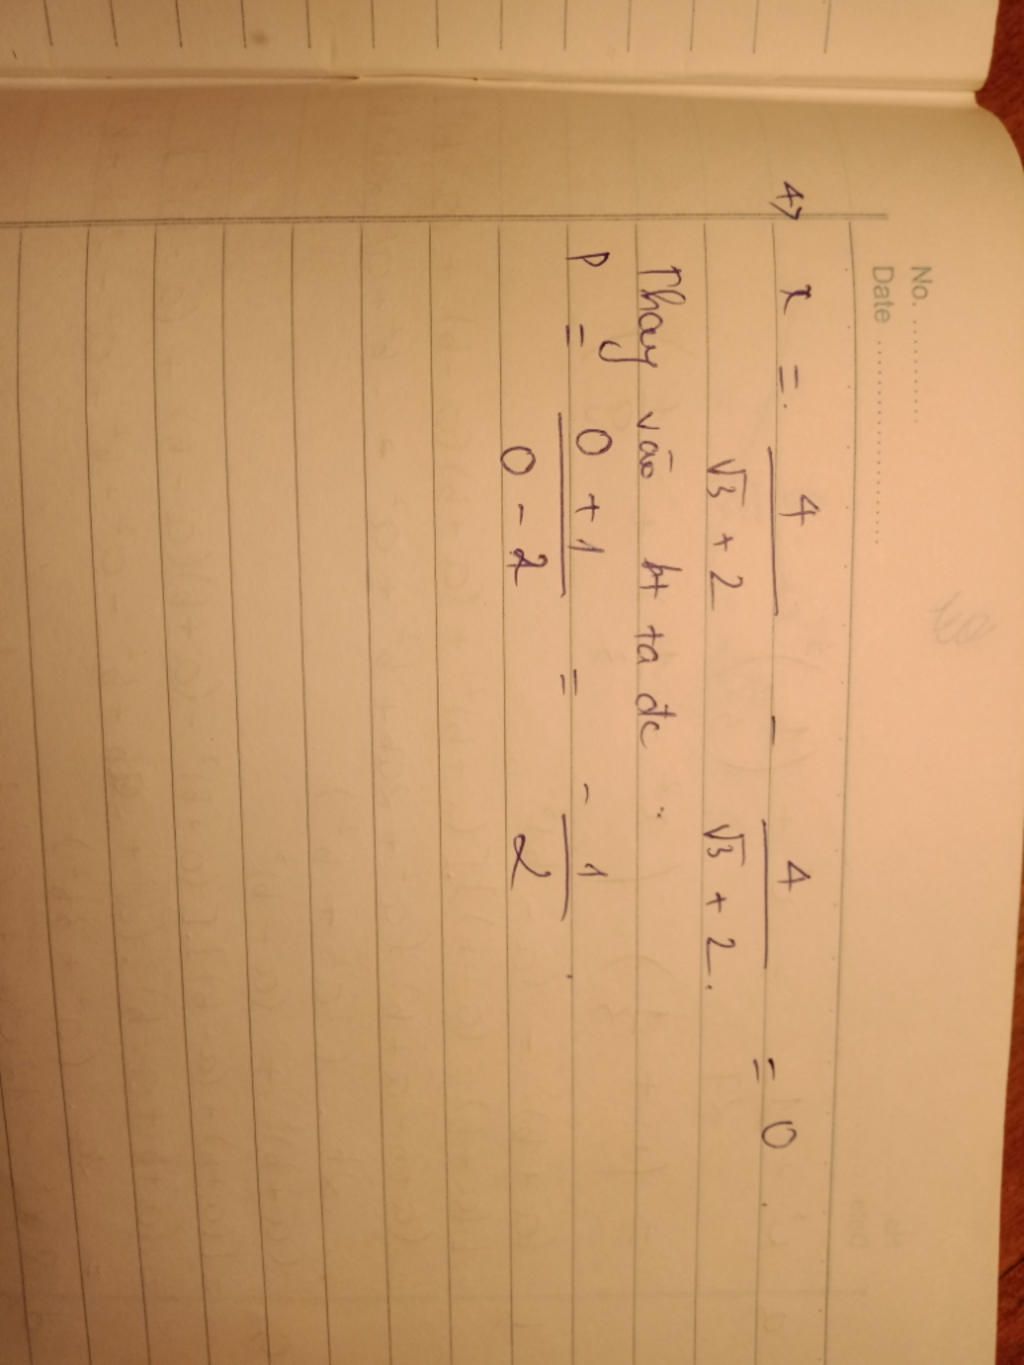 No. ...........
Date .......................
4> x = . 4/(√3 + 2) - 4/(√3 + 2) . = 0 .
Thay vào bt ta đc :
P = (0 + 1)/(0 - 2) = - 1/2 .